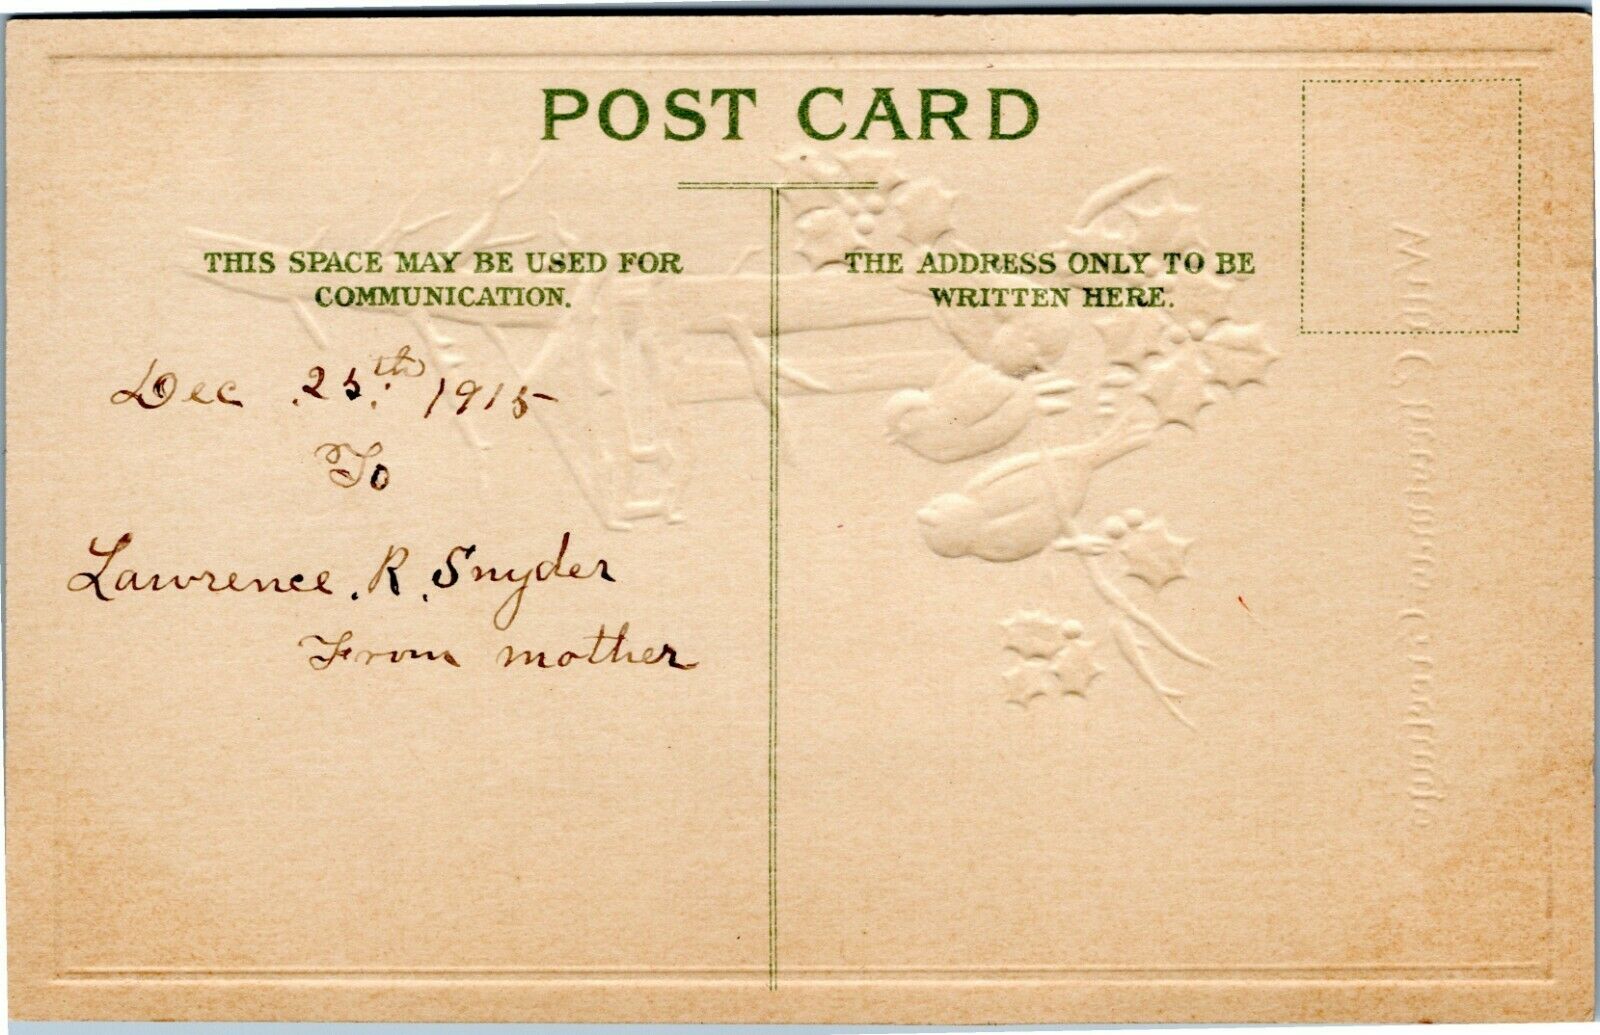 POST CARD
THIS SPACE MAY BE USED FOR
COMMUNICATION.
THE ADDRESS ONLY TO BE
WRITTEN HERE.
Dec .25th. 1915
To
Lawrence. R. Snyder
From mother